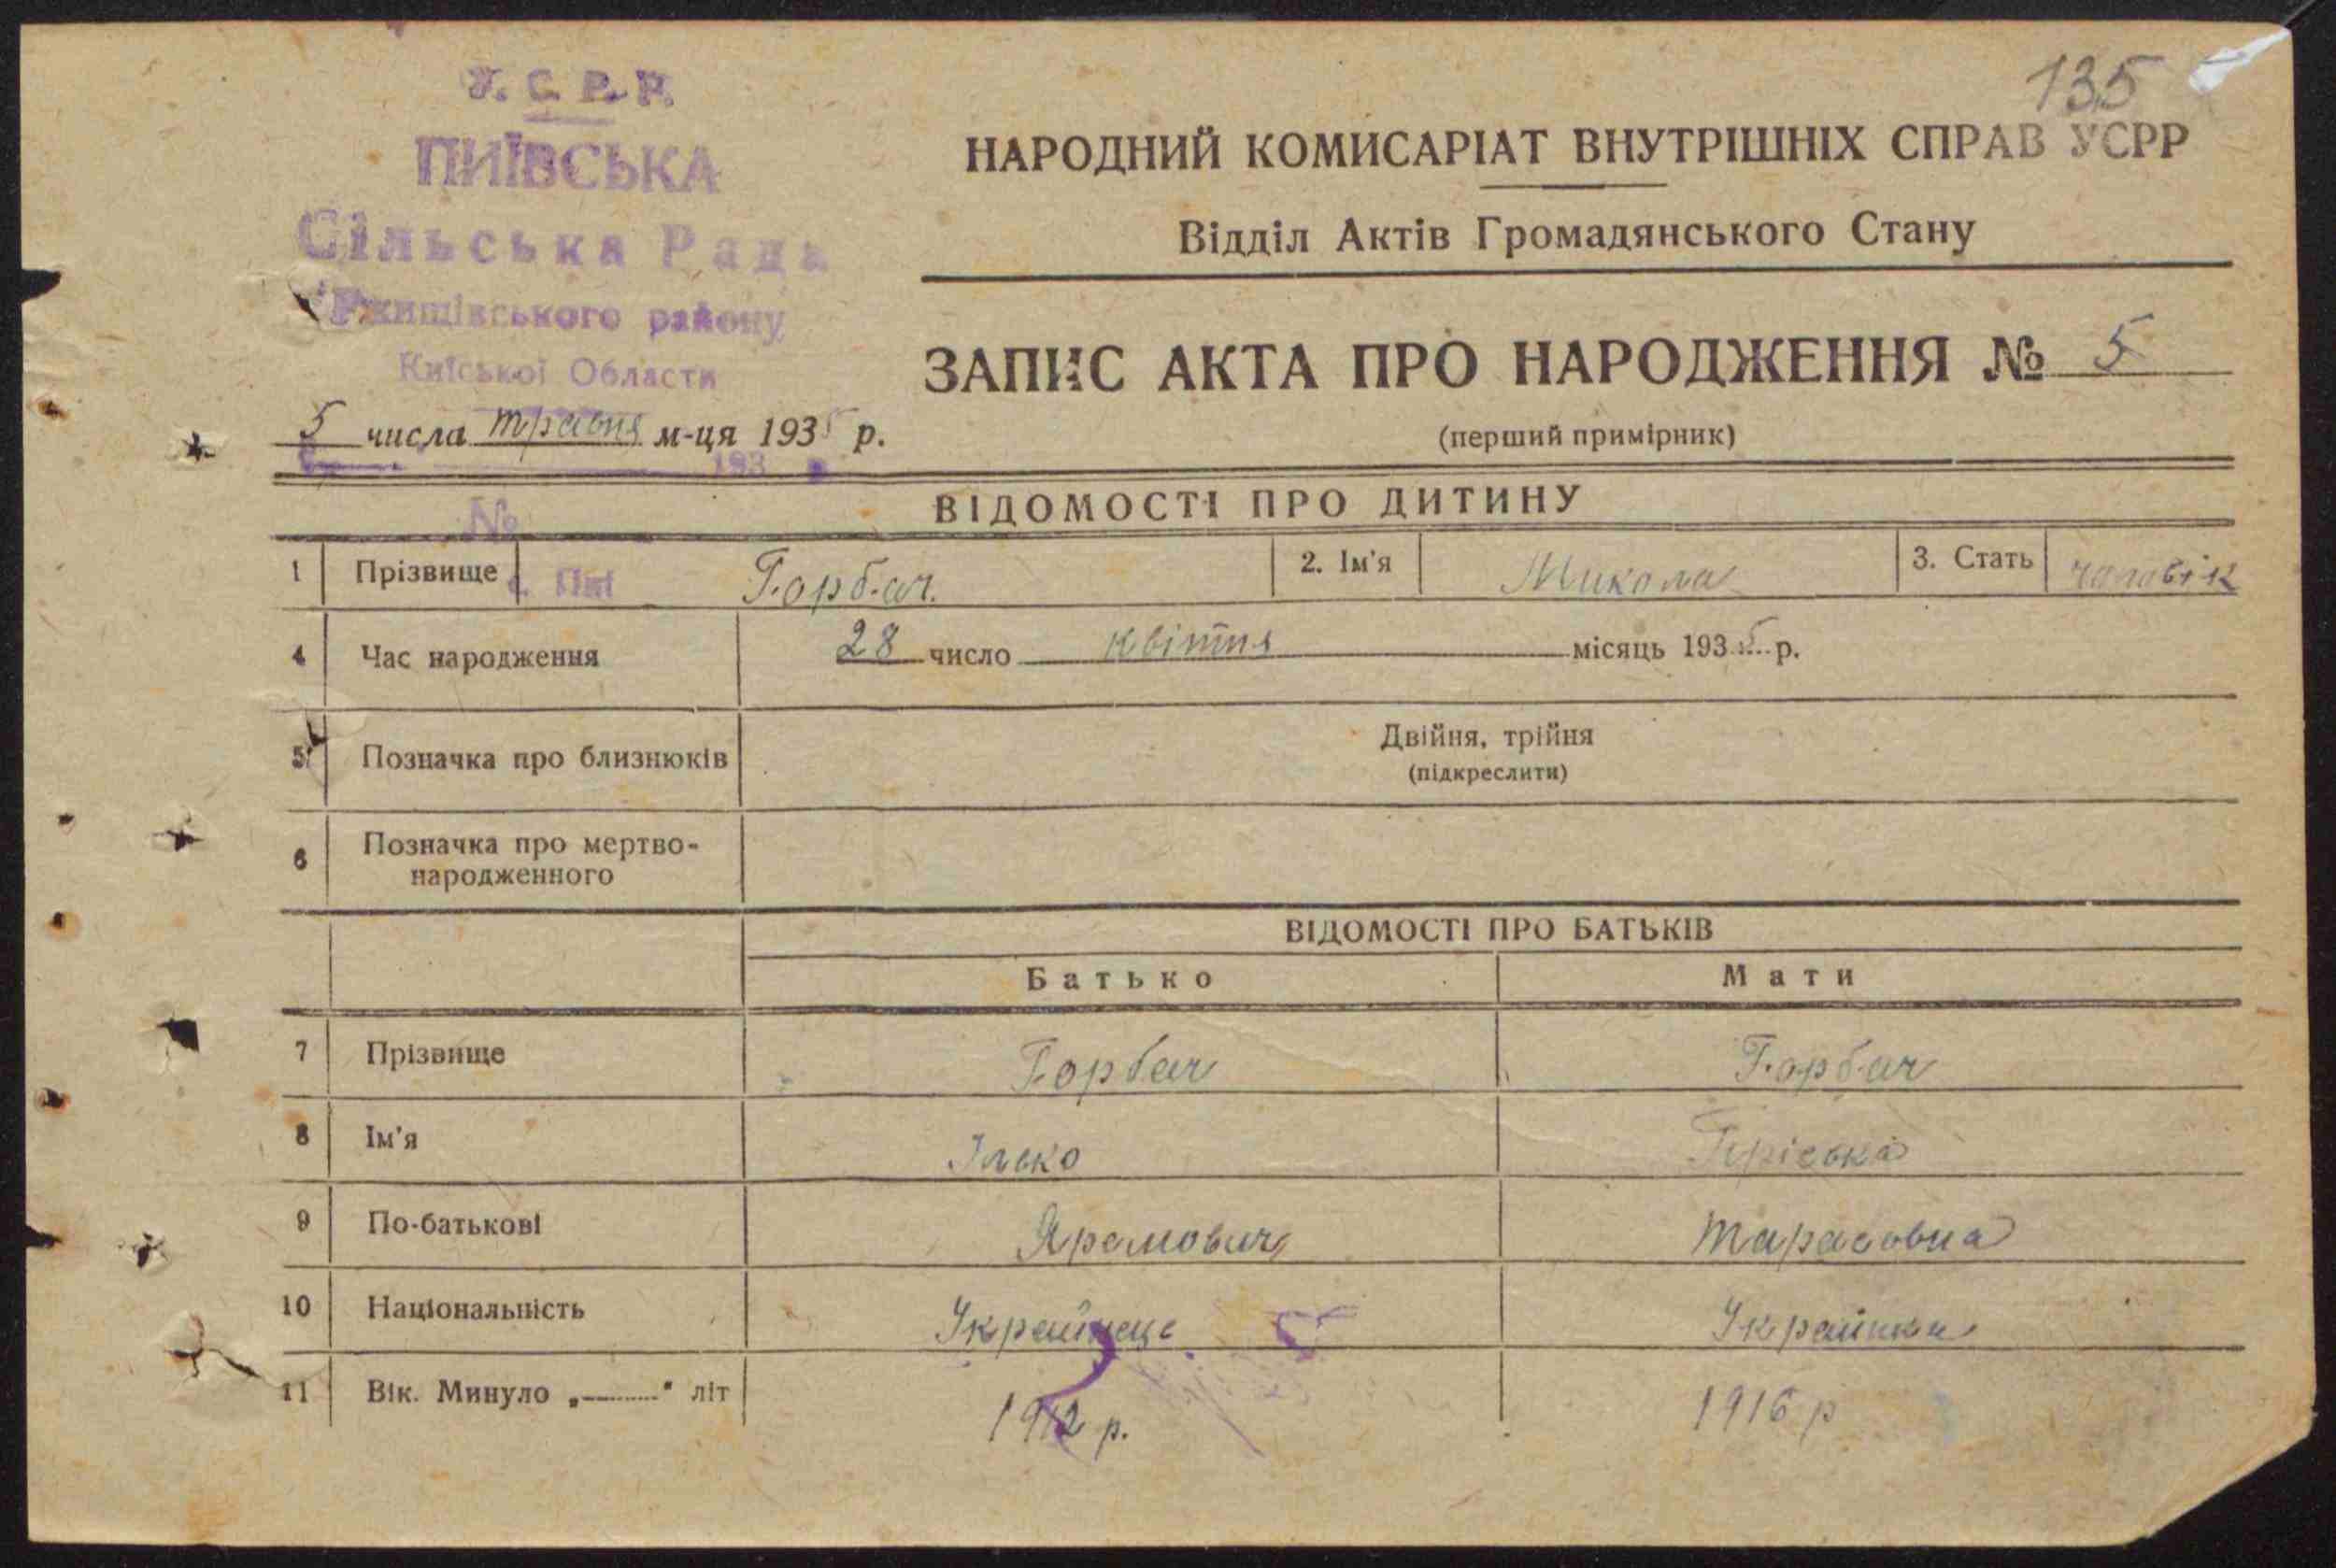 135
У.С.Р.Р.
ПИЇВСЬКА
Сільська Рада
Ржищівського району
Київської Области
НАРОДНИЙ КОМИСАРІАТ ВНУТРІШНІХ СПРАВ УСРР
Відділ Актів Громадянського Стану
ЗАПИС АКТА ПРО НАРОДЖЕННЯ № 5
(перший примірник)
5 числа травня м-ця 1935 р.
193 р
№
ВІДОМОСТІ ПРО ДИТИНУ
1 Прізвище Горбач 2. Ім'я Микола 3. Стать чоловік
с. Пиї
4 Час народження 28 число квітня місяць 1935 р.
5 Позначка про близнюків Двійня, трійня
(підкреслити)
6 Позначка про мертво-
народженного
ВІДОМОСТІ ПРО БАТЬКІВ
Батько Мати
7 Прізвище Горбач Горбач
8 Ім'я Ілько Пріська
9 По-батькові Яремович Тарасовна
10 Національність Українець Українка
11 Вік. Минуло „ " літ 1912 р. 1916 р